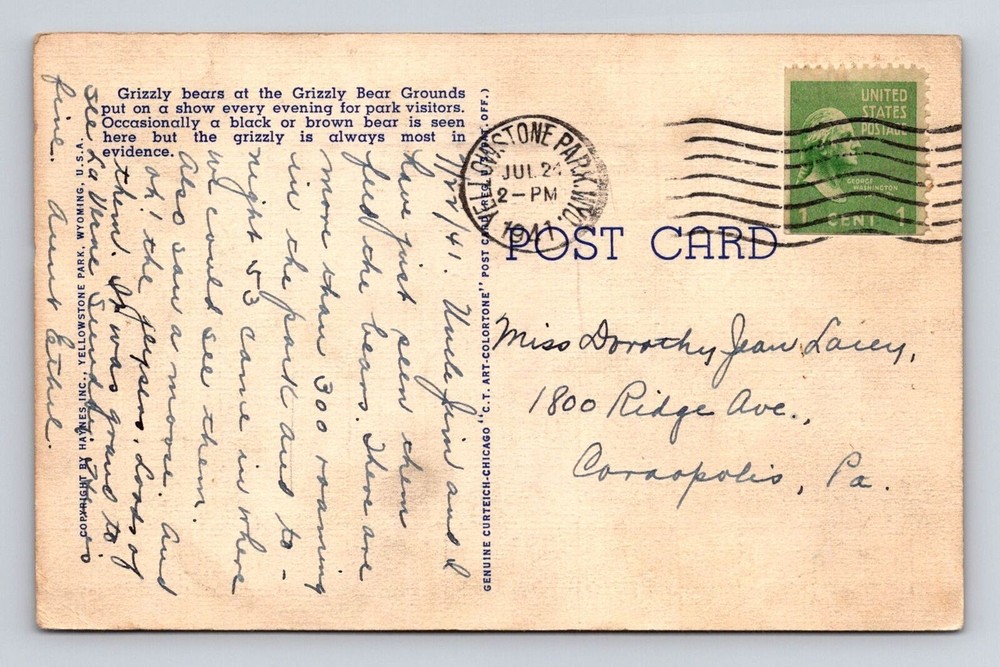 Grizzly bears at the Grizzly Bear Grounds
put on a show every evening for park visitors.
Occasionally a black or brown bear is seen
here but the grizzly is always most in
evidence.
7/24/41. Uncle Jim and I
have just seen them
feed the bears. There are
more than 300 roaming
in the park and to-
night 53 came in where
we could see them.
Also saw a moose. And
oh! the geysers. Loads of
them. It was grand to
see La Verne Sund
fine. Aunt Ethel.
COPYRIGHT BY HAYNES, INC., YELLOWSTONE PARK, WYOMING, U.S.A.
GENUINE CURTEICH-CHICAGO "C.T. ART-COLORTONE" POST CARD (REG. U.S. PAT. OFF.)
YELLOWSTONE PARK, WYO.
JUL 24
2-PM
1941
UNITED
STATES
POSTAGE
GEORGE
WASHINGTON
1 CENT 1
POST CARD
Miss Dorothy Jean Lacey,
1800 Ridge Ave.,
Coraopolis, Pa.